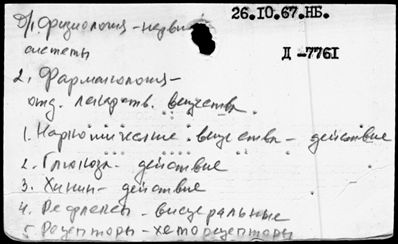 26.10.67.НБ.
Д-7761
физиология - нервн.
системы
2. Фармакология -
отд. лекарств. вещества
1. Наркотические вещества - действие
2. Глюкоза - действие
3. Хинин - действие
4. Рефлексы - висцеральные
5. Рецепторы - хеморецепторы